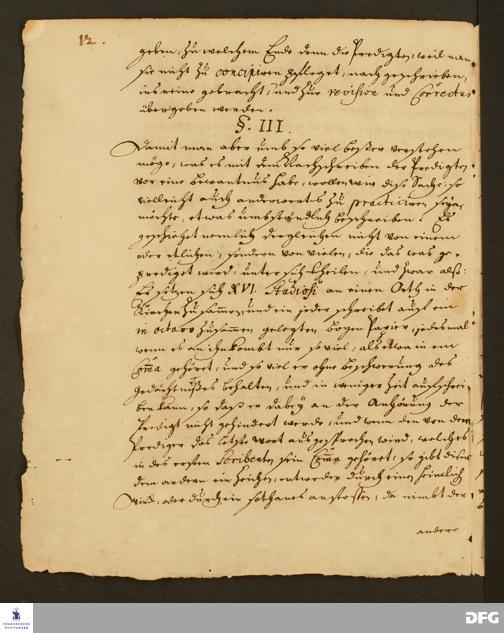 12.
geben, zu welchem Ende denn die Predigten, weil man
sie nicht zu concipiren pfleget, nachgeschrieben,
ins reine gebracht, und zur revision und Correctur
übergeben werden.
§. III.
Damit man aber umb so viel beßer verstehen
möge, was es mit dem Nachschreiben der Predigten
vor eine bewantnüs habe, wollen wir diese Sache, so
vielleicht auch anderwerts zu practiciren seyn
möchte, etwas umbständlich beschreiben. Es
geschiehet nemlich dergleichen nicht von einem
oder etlichen, sondern von vielen, die das was ge-
prediget wird, unter sich theilen, und zwar also:
Es sitzen sich XVI. Studiosi an einen Orth in der
Kirchen zusammen, und ein jeder schreibt auf ein
in octavo zusammen gelegten bogen Papier, jedesmal
wenn es an ihn kombt nur so viel, als etwa in ein
Com̄a gehöret, und so viel er ohne beschwerung des
Gedächtnüßes behalten, und in weniger Zeit aufschrei-
ben kann, so daß er dabey an der Anhörung der
Predigt nicht gehindert werde, und wenn den von dem
Prediger das letzte Wort ausgesprochen wird, welches
in des ersten Scribenten sein Com̄a gehöret, so gibt dieser
dem andern ein Zeichen, entweder durch einen heimlich
Winck, oder durch ein sothanes anstoßen, da nimbt der
andere
FRANCKESCHE
STIFTUNGEN
DFG